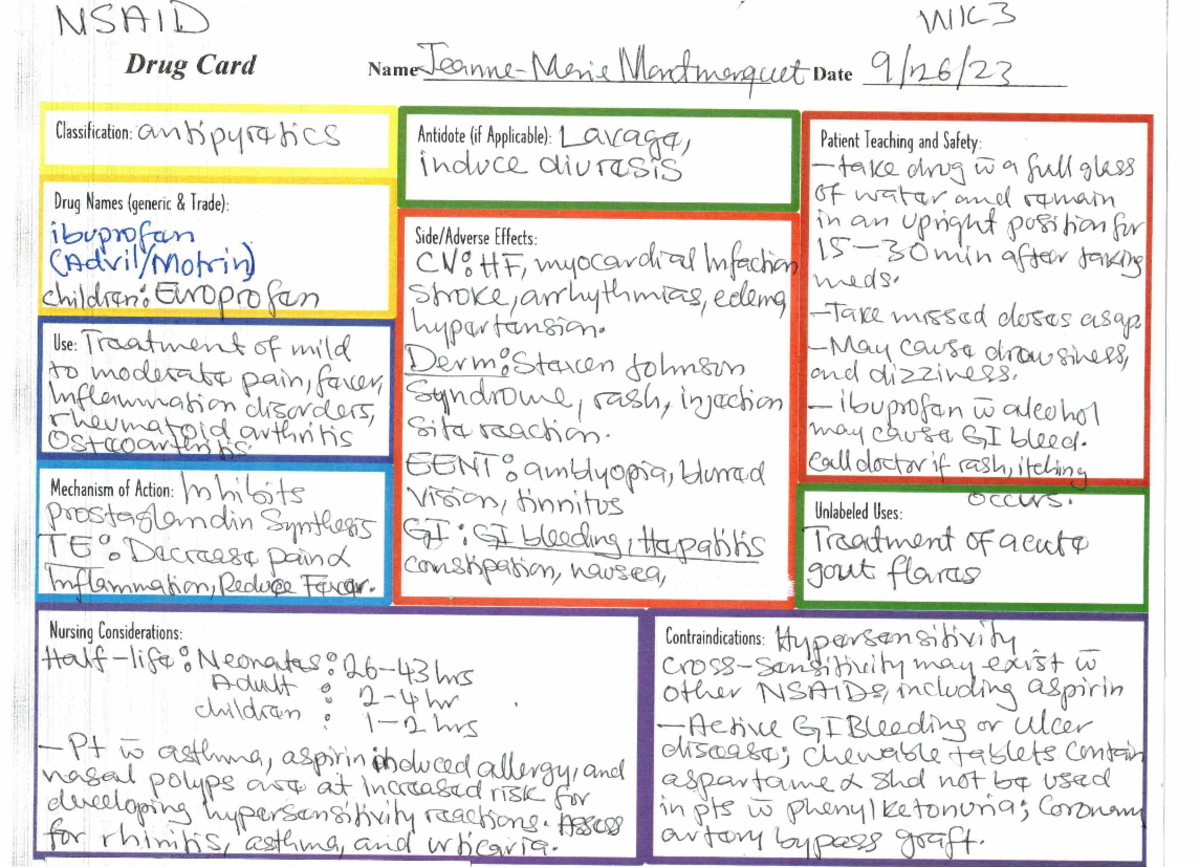 NSAID
WK3
Drug Card
Name Jeanne-Marie Montmarquet Date 9/26/23
Classification: antipyratics
Drug Names (generic & Trade):
ibuprofan
(Advil/Motrin)
children: Europrofan
Use: Treatment of mild
to moderate pain, faver,
Inflammation disorders,
rheumatoid arthritis
Osteoarthritis.
Mechanism of Action: Inhibits
prostaglandin Synthesis
TE: Decrease pain &
Inflammation, Reduce Faver.
Antidote (if Applicable): Lavage,
induce diurasis
Side/Adverse Effects:
CV: HF, myocardial Infaction
stroke, arrhythmias, edema
hypartansion.
Derm: Staven Johnson
Syndrome, rash, injection
Site reaction.
EENT: amblyopia, blurrad
Vision, tinnitus
GI: GI bleeding, Hapatitis
constipation, nausea,
Patient Teaching and Safety:
-take drug w̄ a full glass
of water and remain
in an upright position for
15-30min after taking
meds.
-Take missed doses asap.
-May cause drowsiness,
and dizziness.
- ibuprofan w̄ alcohol
may cause GI bleed.
Call doctor if rash, itching
occurs.
Unlabeled Uses:
Treatment of acute
gout flares
Nursing Considerations:
Half-life: Neonates: 26-43 hrs
Adult : 2-4 hr
children : 1-2 hrs
-Pt w̄ asthma, aspirin induced allergy, and
nasal polyps are at Increased risk for
developing hypersensitivity reactions. Assess
for rhinitis, asthma, and urticaria.
Contraindications: Hypersensitivity
Cross-Sensitivity may exist w̄
other NSAIDS, including aspirin
-Active GI Bleeding or Ulcer
disease; Chewable tablets Contain
aspartame & shd not be used
in pts w̄ phenylketonuria; Coronary
artery bypass graft.